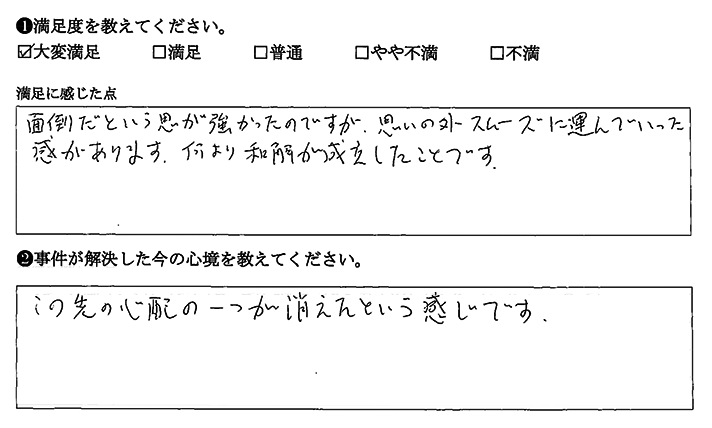 ❶満足度を教えてください。
☑大変満足 □満足 □普通 □やや不満 □不満
満足に感じた点
面倒だという思が強かったのですが、思いの外スムーズに運んでいった
感があります。何より和解が成立したことです。
❷事件が解決した今の心境を教えてください。
この先の心配の一つが消えたという感じです.